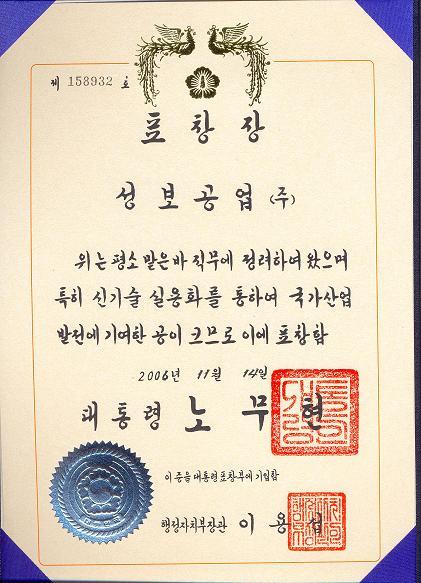 제 158932 호
표창장
성보공업 (주)
위는 평소 맡은바 직무에 정려하여 왔으며
특히 신기술 실용화를 통하여 국가산업
발전에 기여한 공이 크므로 이에 표창함
2006년 11월 14일
대통령 노무현
이 증을 대통령표창부에 기입함
행정자치부장관 이용섭